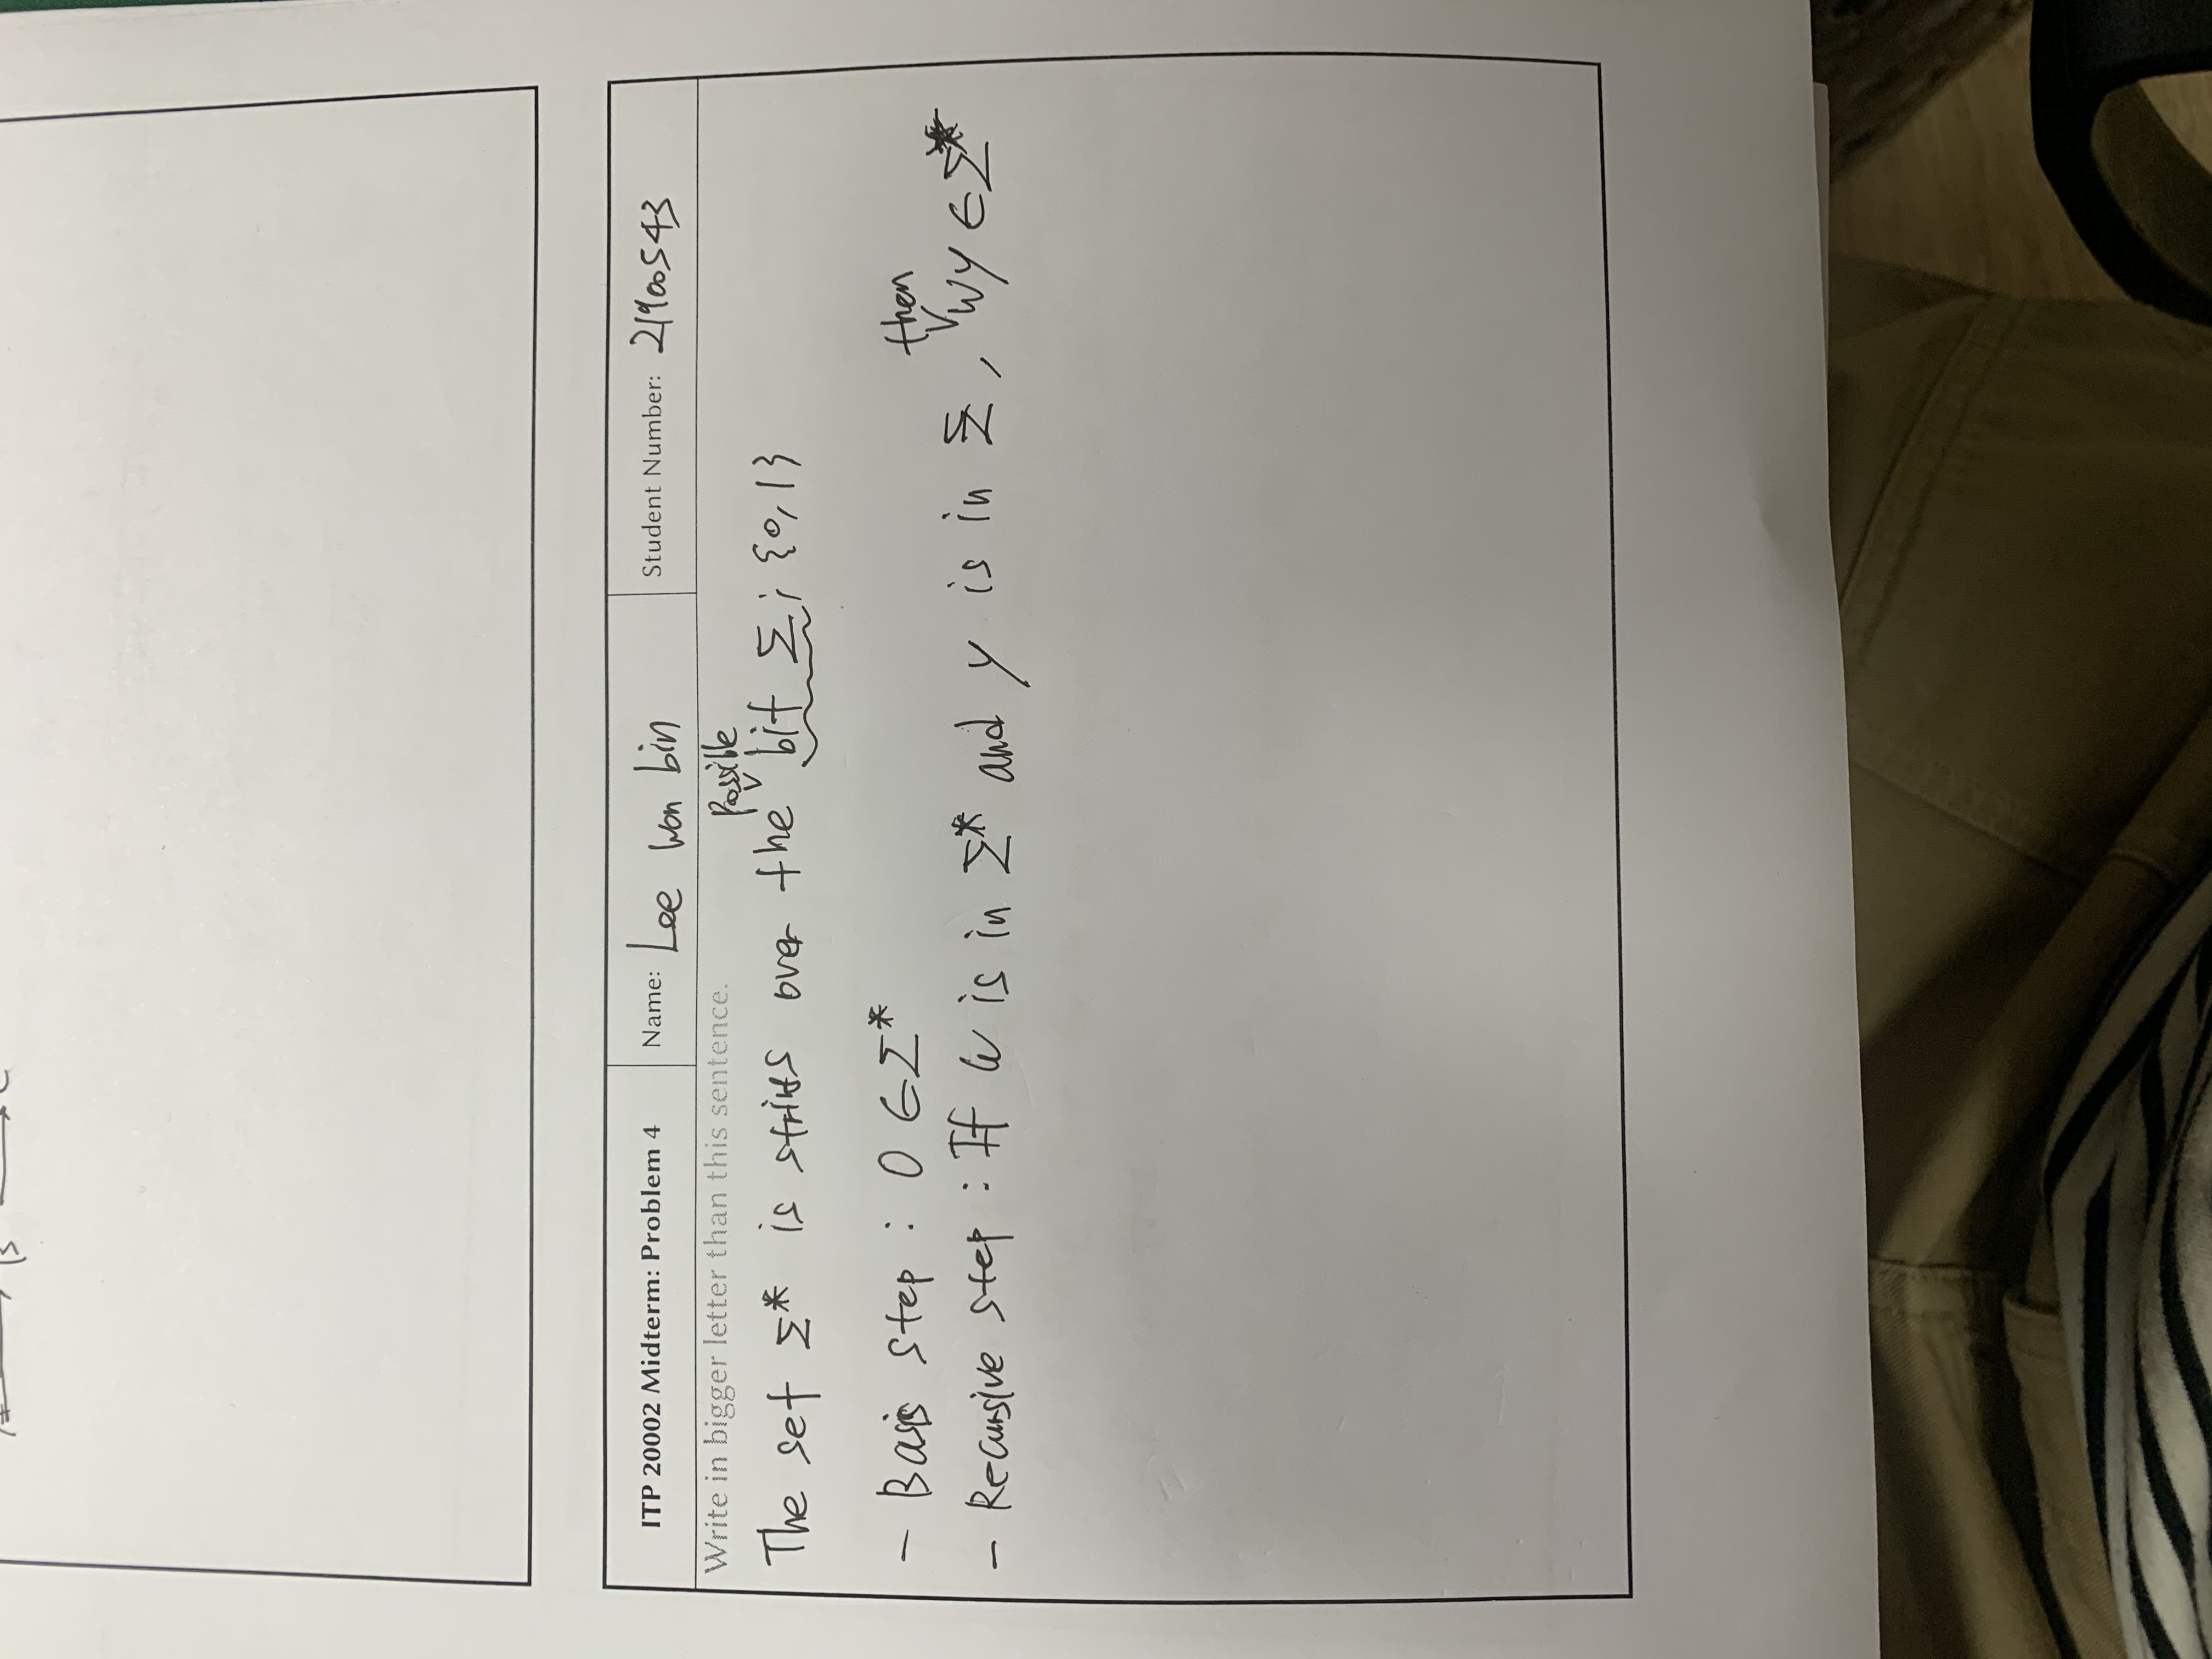 B
ITP 20002 Midterm: Problem 4 Name: Lee won bin Student Number: 21900543
Write in bigger letter than this sentence.
possible
The set Σ* is over the bit Σ; {0,1}
- Basis step : 0 ∈ Σ*
then
- Recursive step : If w is in Σ* and y is in Σ, wy ∈ Σ*